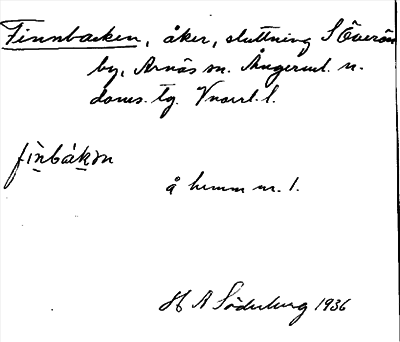 Finnbacken, åker, sluttning S Överån
by, Arnäs sn. Ångerml. n.
doms. tg. Vnorrl. l.
finbákɜn
å hemm nr. 1.
H A Söderberg 1936